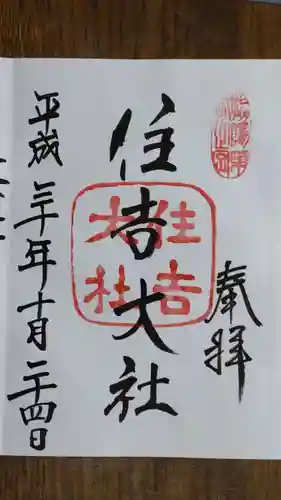 奉拝
住吉大社
住吉大社
平成三十年十月二十四日